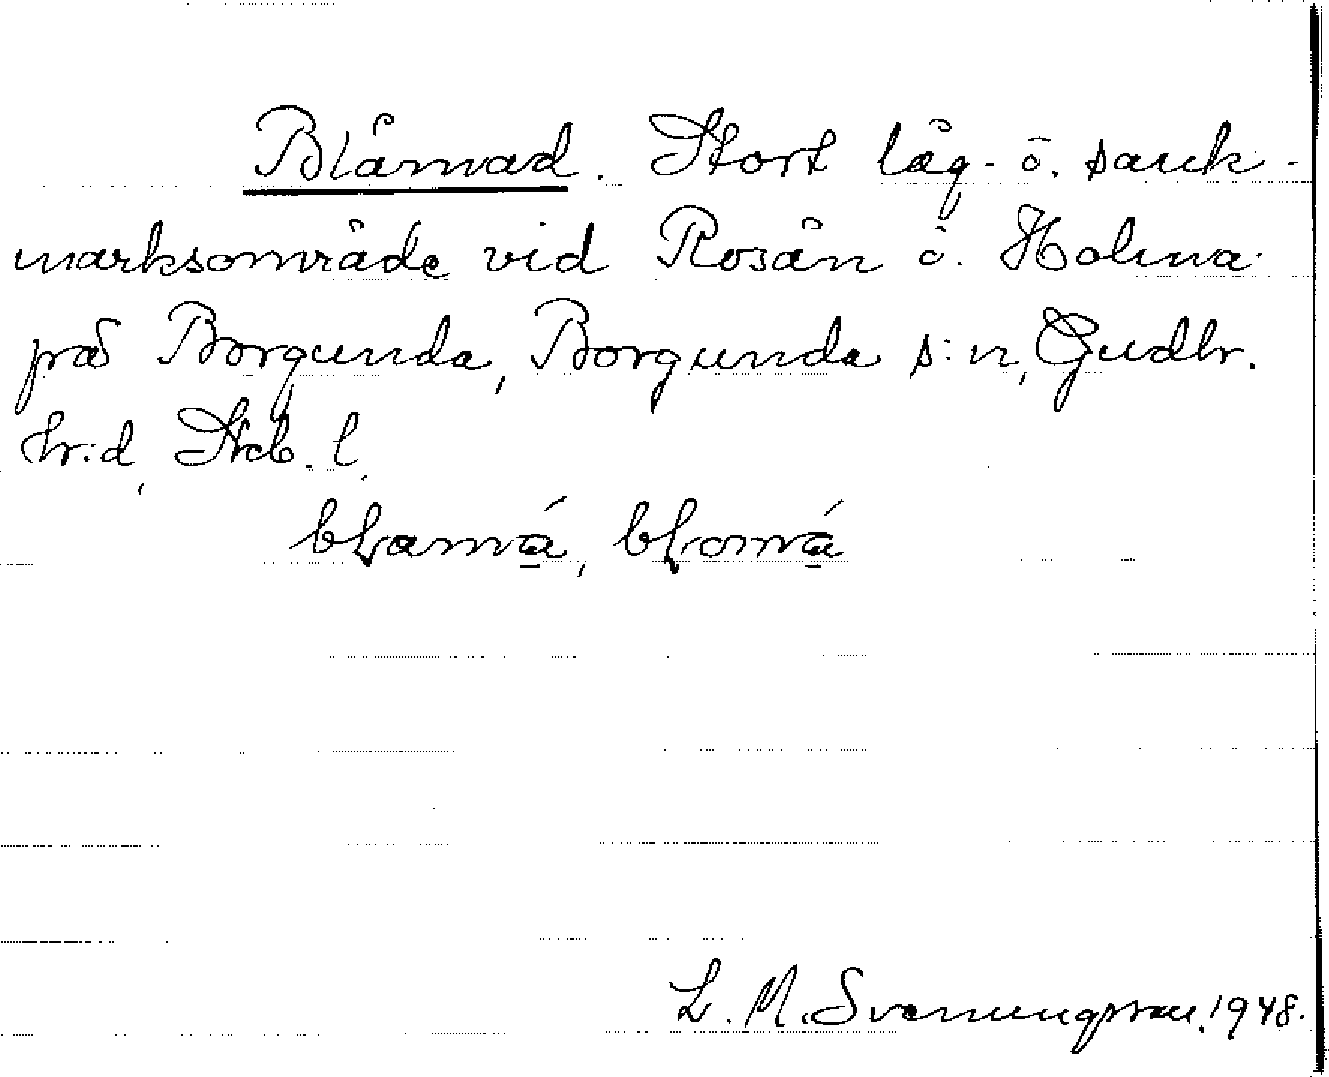 Blåmad. Stort låg- ö. sank-
marksområde vid Rosån ö. Holma
på Borgunda, Borgunda s:n, Gudhr.
hr:d, Skb. l.
L. M. Svenungsson. 1948.